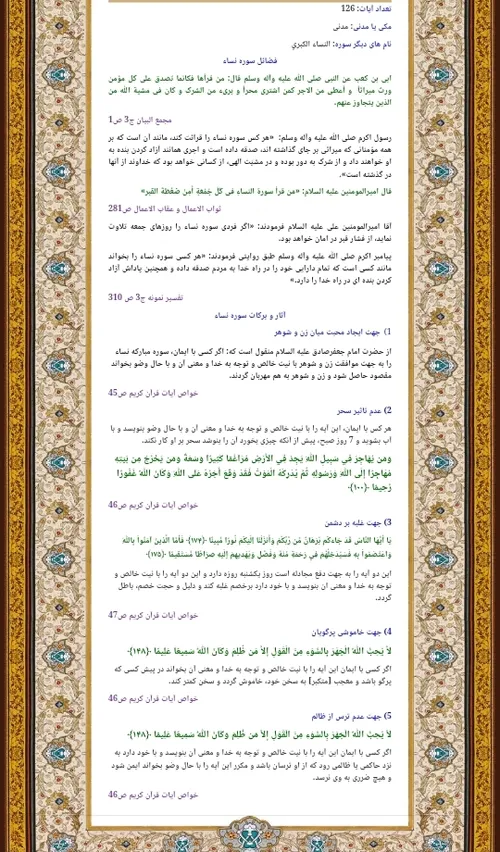 تعداد آیات: 126
مکی یا مدنی: مدنی
نام های دیگر سوره: النساء الکبری
فضائل سوره نساء
ابی بن کعب عن النبی صلی الله علیه وآله وسلم قال: من قرأها فکأنما تصدق علی کل مؤمن
ورث میراثاً و أعطی من الاجر کمن اشتری محرراً و بریء من الشرک و کان فی مشیة الله من
الذین یتجاوز عنهم.
مجمع البیان ج3 ص1
رسول اکرم صلی الله علیه وآله وسلم: «هر کس سوره نساء را قرائت کند، مانند آن است که بر
همه مؤمنانی که میراثی بر جای گذاشته اند، صدقه داده است و اجری همانند آزاد کردن بنده به
او خواهند داد و از شرک به دور بوده و در مشیت الهی، از کسانی خواهد بود که خداوند از آنها
در گذشته است».
قال امیرالمومنین علیه السلام: «من قرأ سورة النساء فی کل جُمعَةٍ أمِنَ ضَغْطَةَ القَبر»
ثواب الاعمال و عقاب الاعمال ص281
آقا امیرالمومنین علی علیه السلام فرمودند: «اگر فردی سوره نساء را روزهای جمعه تلاوت
نماید، از فشار قبر در امان خواهد بود.
پیامبر اکرم صلی الله علیه وآله وسلم طبق روایتی فرمودند: «هر کسی سوره نساء را بخواند
مانند کسی است که تمام دارایی خود را در راه خدا به مردم صدقه داده و همچنین پاداش آزاد
کردن بنده ای در راه خدا را دارد.»
تفسیر نمونه ج3 ص 310
آثار و برکات سوره نساء
1) جهت ایجاد محبت میان زن و شوهر
از حضرت امام جعفرصادق علیه السلام منقول است که: اگر کسی با ایمان، سوره مبارکه نساء
را به جهت موافقت زن و شوهر با نیت خالص و توجه به خدا و معنی آن و با حال وضو بخواند
مقصود حاصل شود و زن و شوهر به هم مهربان گردند.
خواص آیات قرآن کریم ص45
2) عدم تاثیر سحر
هر کس با ایمان، این آیه را با نیت خالص و توجه به خدا و معنی آن و با حال وضو بنویسد و با
آب بشوید و 7 روز صبح، پیش از آنکه چیزی بخورد آن را بنوشد سحر بر او کار نکند.
وَمَن يُهَاجِرْ فِي سَبِيلِ اللّهِ يَجِدْ فِي الأَرْضِ مُرَاغَمًا كَثِيرًا وَسَعَةً وَمَن يَخْرُجْ مِن بَيْتِهِ
مُهَاجِرًا إِلَى اللّهِ وَرَسُولِهِ ثُمَّ يُدْرِكْهُ الْمَوْتُ فَقَدْ وَقَعَ أَجْرُهُ عَلى اللّهِ وَكَانَ اللّهُ غَفُورًا
رَّحِيمًا ﴿۱۰۰﴾
خواص آیات قرآن کریم ص46
3) جهت غلبه بر دشمن
يَا أَيُّهَا النَّاسُ قَدْ جَاءكُم بُرْهَانٌ مِّن رَّبِّكُمْ وَأَنزَلْنَا إِلَيْكُمْ نُورًا مُّبِينًا ﴿۱۷۴﴾ فَأَمَّا الَّذِينَ آمَنُواْ بِاللّهِ
وَاعْتَصَمُواْ بِهِ فَسَيُدْخِلُهُمْ فِي رَحْمَةٍ مِّنْهُ وَفَضْلٍ وَيَهْدِيهِمْ إِلَيْهِ صِرَاطًا مُّسْتَقِيمًا ﴿۱۷۵﴾
این دو آیه را به جهت دفع مجادله است روز یکشنبه روزه دارد و این دو آیه را با نیت خالص و
توجه به خدا و معنی آن بنویسد و با خود دارد برخصم غلبه کند و دلیل و حجت خصم، باطل
گردد.
خواص آیات قرآن کریم ص47
4) جهت خاموشی پرگویان
لاَّ يُحِبُّ اللّهُ الْجَهْرَ بِالسُّوَءِ مِنَ الْقَوْلِ إِلاَّ مَن ظُلِمَ وَكَانَ اللّهُ سَمِيعًا عَلِيمًا ﴿۱۴۸﴾
اگر کسی با ایمان این آیه را با نیت خالص و توجه به خدا و معنی آن بخواند در پیش کسی که
پرگو باشد و معجب [متکبر] به سخن خود، خاموش گردد و سخن کمتر کند.
خواص آیات قرآن کریم ص46
5) جهت عدم ترس از ظالم
لاَّ يُحِبُّ اللّهُ الْجَهْرَ بِالسُّوَءِ مِنَ الْقَوْلِ إِلاَّ مَن ظُلِمَ وَكَانَ اللّهُ سَمِيعًا عَلِيمًا ﴿۱۴۸﴾
اگر کسی با ایمان این آیه را با نیت خالص و توجه به خدا و معنی آن بنویسد و با خود دارد به
نزد حاکمی یا ظالمی رود که از او ترسان باشد و مکرر این آیه را با حال وضو بخواند ایمن شود
و هیچ ضرری به وی نرسد.
خواص آیات قرآن کریم ص46